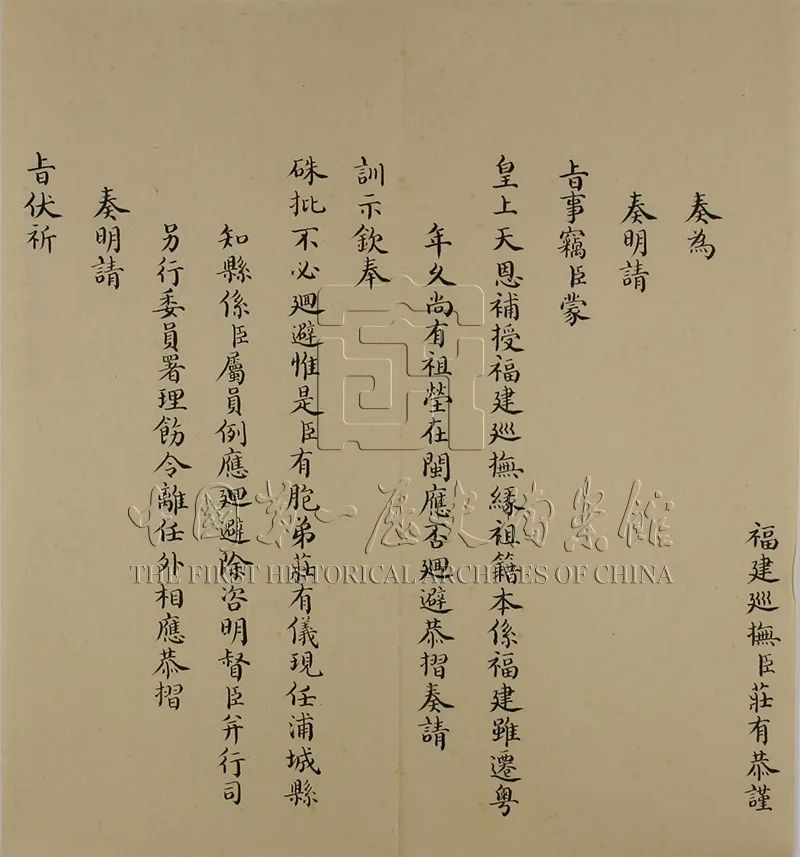 福建廵撫臣莊有恭謹
奏為
奏明請
旨事竊臣蒙
皇上天恩補授福建廵撫緣祖籍本係福建雖遷粤
年久尚有祖塋在閩應否廻避恭摺奏請
訓示欽奉
硃批不必廻避惟是臣有胞弟莊有儀現任浦城縣
知縣係臣屬員例應廻避除咨明督臣并行司
另行委員署理飭令離任外相應恭摺
奏明請
旨伏祈
中国第一历史档案馆
THE FIRST HISTORICAL ARCHIVES OF CHINA